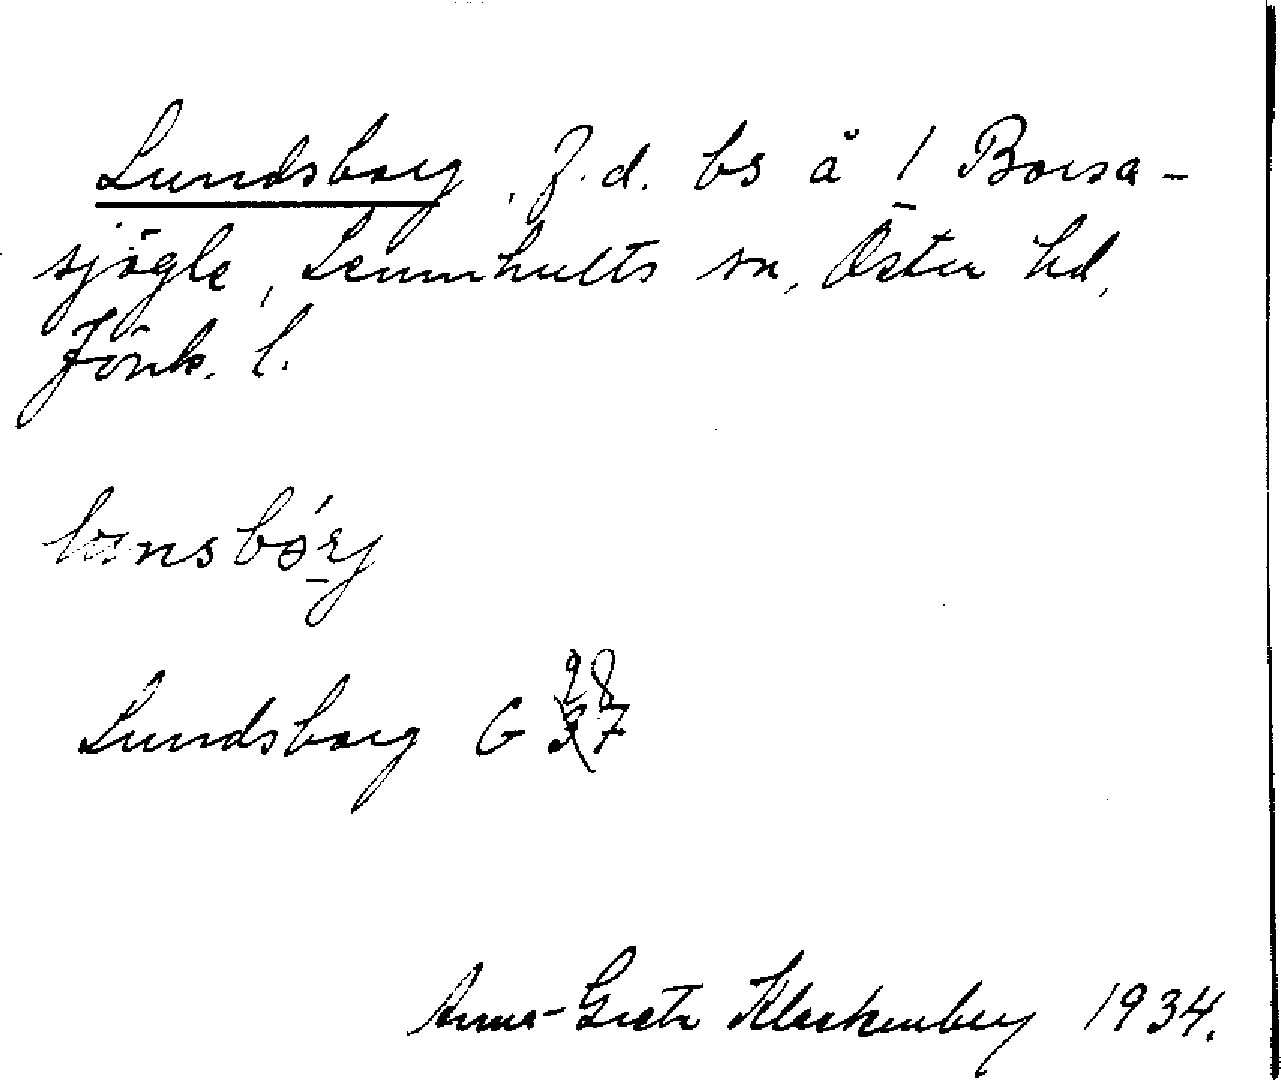 Lundsborg, f.d. bs å 1 Borsa-
sjögle, Lemnhults sn, Öster hd,
Jönk. l.
Lundsborg G 28 37
Anna-Greta Klackenberg 1934.